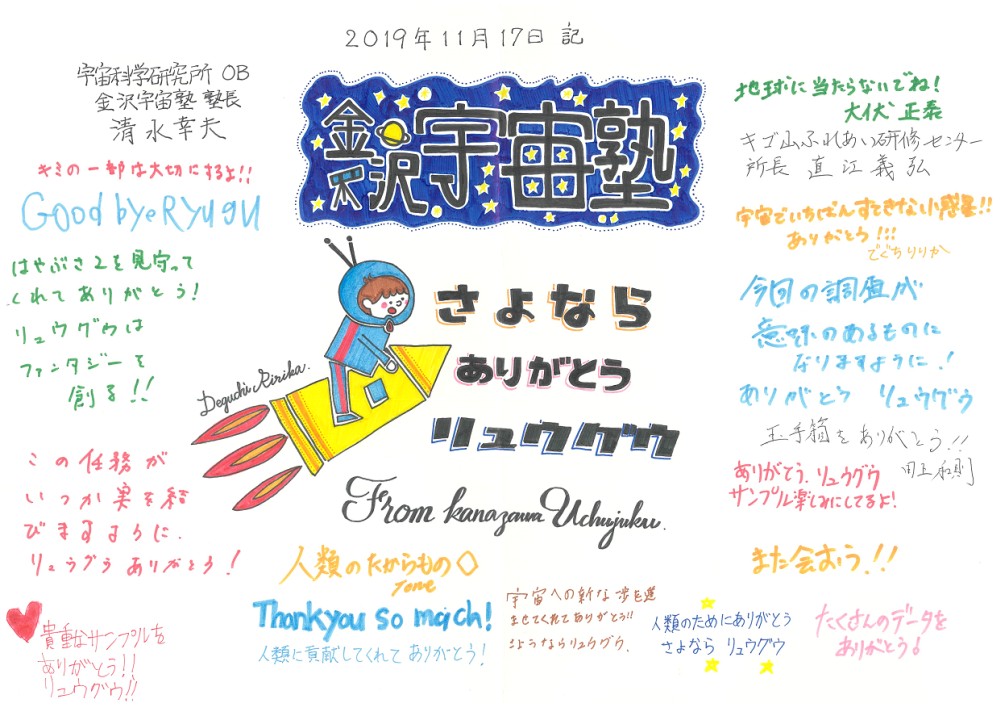 2019年11月17日 記
宇宙科学研究所 OB
金沢宇宙塾 塾長
清水幸夫
キミの一部は大切にするよ!!
Good bye RYUGU
はやぶさ2を見守って
くれてありがとう!
リュウグウは
ファンタジーを
創る!!
この任務が
いつか実を結
びますように.
リュウグウ ありがとう!
貴重なサンプルを
ありがとう!!
リュウグウ!!
金沢宇宙塾
さよなら
ありがとう
リュウグウ
Deguchi Ririka.
From kanazawa Uchujuku.
人類のたからもの
Tome
Thankyou so mach!
人類に貢献してくれて ありがとう!
宇宙への新な歩を進
ませてくれてありがとう!!
さようならリュウグウ.
人類のためにありがとう
さよなら リュウグウ
地球に当たらないでね!
大伏 正泰
キゴ山ふれあい研修センター
所長 直江義弘
宇宙でいちばんすてきな小惑星!!
ありがとう!!!
でぐちりりか
今回の調査が
意味のあるものに
なりますように.!
ありがとう リュウグウ
玉手箱をありがとう!!
田上和則
ありがとう.リュウグウ
サンプル楽しみにしてるよ!
また会おう.!!
たくさんのデータを
ありがとう!